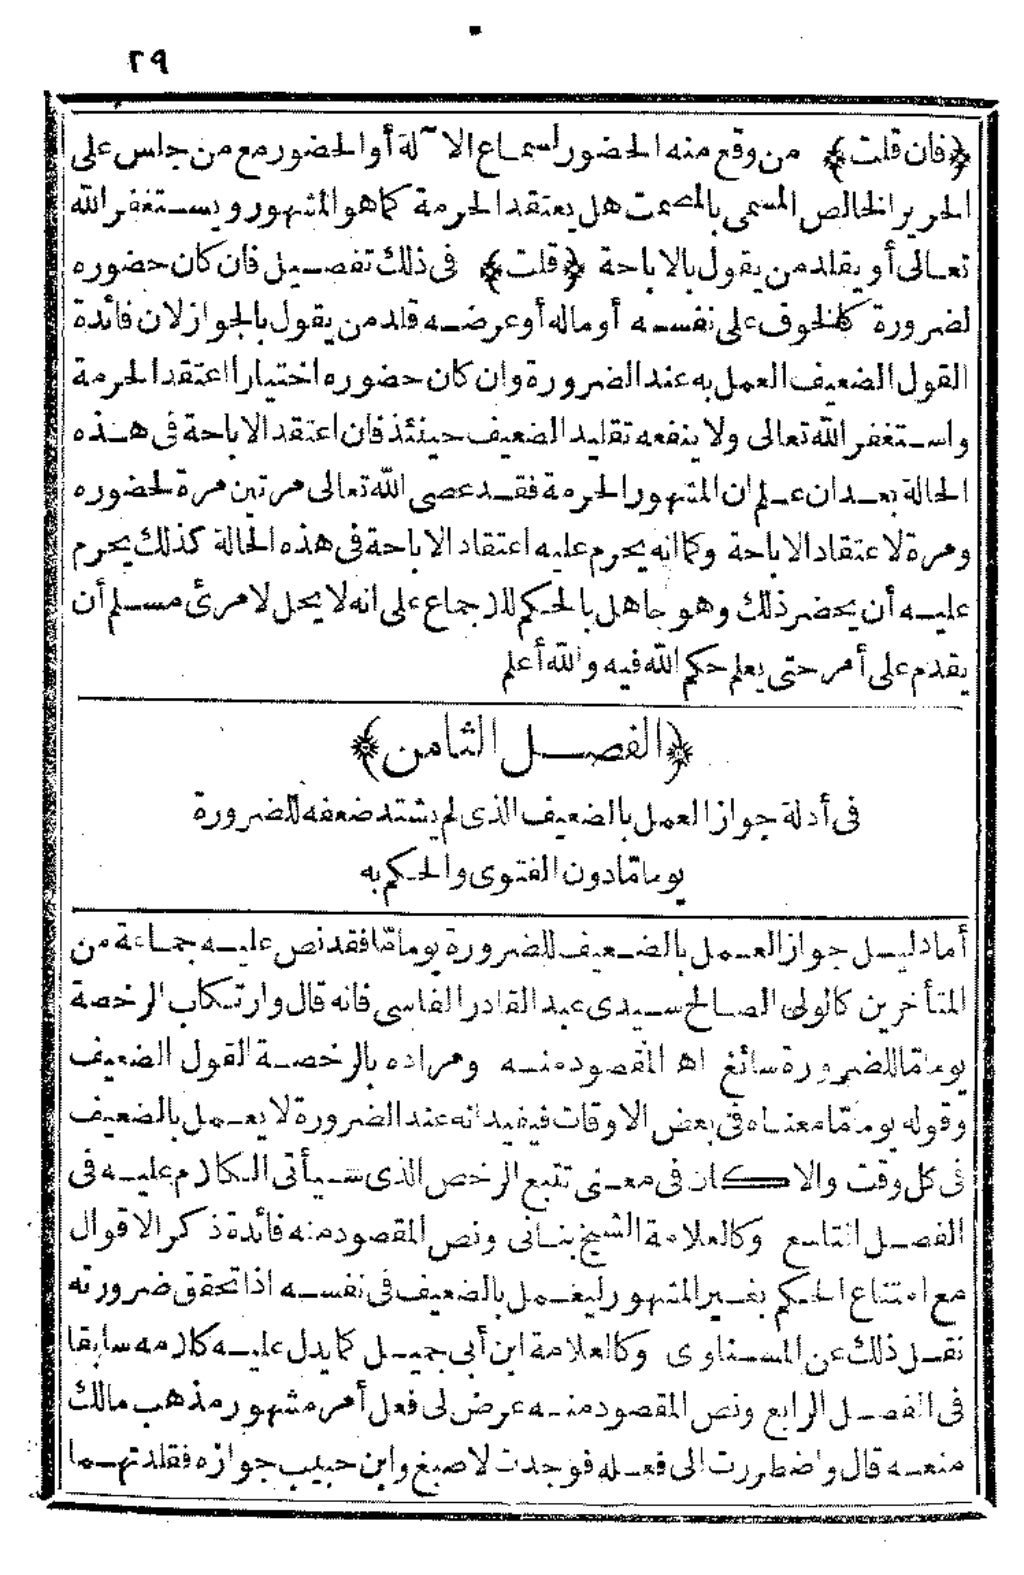 ٢٩
﴿فان قلت﴾ من وقع منه الحضور لسماع الآلة أو الحضور مع من جلس على
الحرير الخالص المسمى بالمصمت هل يعتقد الحرمة كما هو المشهور ويستغفر الله
تعالى أو يقلد من يقول بالاباحة ﴿قلت﴾ فى ذلك تفصيل فان كان حضوره
لضرورة كالخوف على نفسه أو ماله أو عرضه قلد من يقول بالجواز لان فائدة
القول الضعيف العمل به عند الضرورة وان كان حضوره اختيارا اعتقد الحرمة
واستغفر الله تعالى ولا ينفعه تقليد الضعيف حينئذ فان اعتقد الاباحة فى هذه
الحالة بعد ان علم ان المشهور الحرمة فقد عصى الله تعالى مرتين مرة لحضوره
ومرة لاعتقاد الاباحة وكما انه يحرم عليه اعتقاد الاباحة فى هذه الحالة كذلك يحرم
عليه أن يحضر ذلك وهو جاهل بالحكم للاجماع على انه لا يحل لامرئ مسلم أن
يقدم على أمر حتى يعلم حكم الله فيه والله أعلم
﴿الفصل الثامن﴾
فى أدلة جواز العمل بالضعيف الذى لم يشتد ضعفه للضرورة
يوما مّا دون الفتوى والحكم به
أما دليل جواز العمل بالضعيف للضرورة يوما مّا فقد نص عليه جماعة من
المتأخرين كالولى الصالح سيدى عبد القادر الفاسى فانه قال وارتكاب الرخصة
يوما مّا للضرورة سائغ اه المقصود منه ومراده بالرخصة القول الضعيف
وقوله يوما مّا معناه فى بعض الاوقات فيفيد انه عند الضرورة لا يعمل بالضعيف
فى كل وقت والا كان فى معنى تتبع الرخص الذى سيأتى الكلام عليه فى
الفصل التاسع وكالعلامة الشيخ بنانى ونص المقصود منه فائدة ذكر الاقوال
مع امتناع الحكم بغير المشهور ليعمل بالضعيف فى نفسه اذا تحقق ضرورته
نقل ذلك عن المسناوى وكالعلامة ابن أبى جميل كما يدل عليه كلامه سابقا
فى الفصل الرابع ونص المقصود منه عرض لى فعل أمر مشهور مذهب مالك
منعه قال واضطررت الى فعله فوجدت لاصبغ وابن حبيب جوازه فقلدتهما